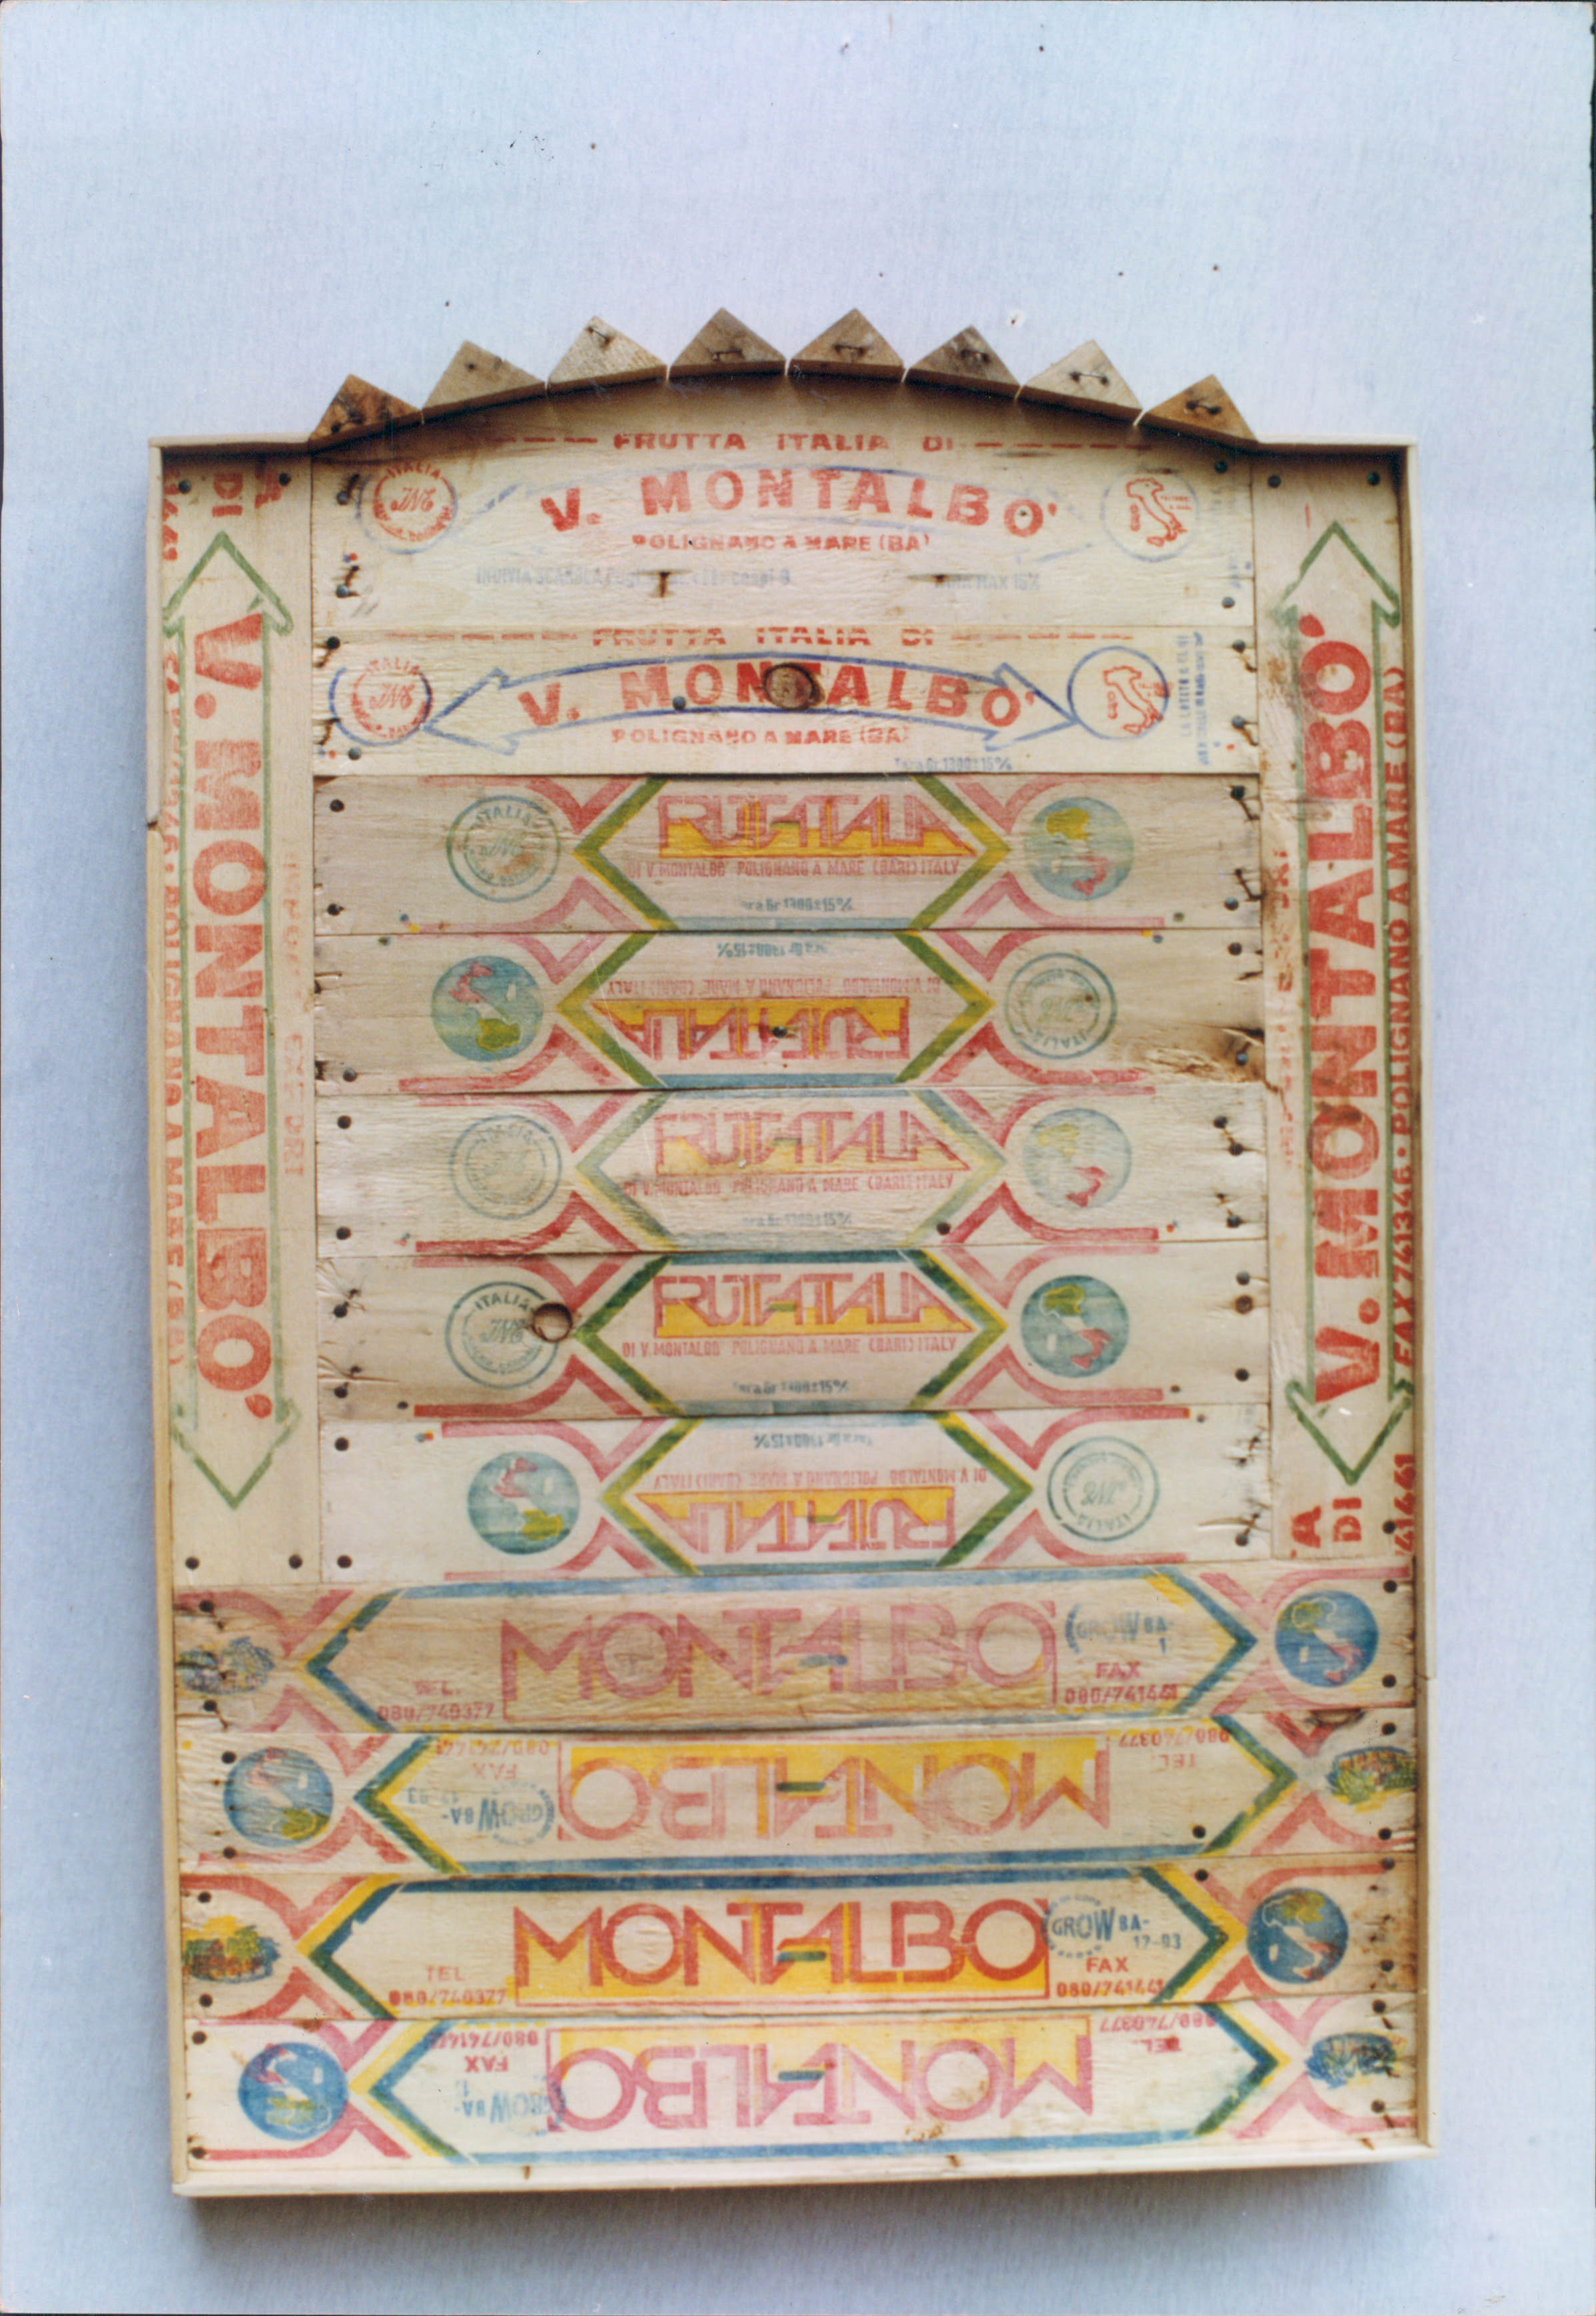 FRUTTA ITALIA DI
ITALIA
V. MONTALBO'
POLIGNANO A MARE (BA)
INDIVIA SCAROLA
MAX 15%
FRUTTA ITALIA DI
ITALIA
V. MONTALBO'
POLIGNANO A MARE (BA)
Tara Gr. 1300±15%
A
DI
V. MONTALBO'
POLIGNANO A MARE (BA)
V. MONTALBO'
FAX 741346 • POLIGNANO A MARE (BA)
A
DI
41441
FRUTTATALIA
ITALIA
DI V. MONTALBO' POLIGNANO A MARE (BARI) ITALY
Gr 1300±15%
Gr 1300±15%
DI V. MONTALBO' POLIGNANO A MARE (BARI) ITALY
FRUTTATALIA
ITALIA
FRUTTATALIA
DI V. MONTALBO' POLIGNANO A MARE (BARI) ITALY
Gr 1300±15%
FRUTTATALIA
ITALIA
DI V. MONTALBO' POLIGNANO A MARE (BARI) ITALY
Gr 1300±15%
Gr 1300±15%
DI V. MONTALBO' POLIGNANO A MARE (BARI) ITALY
FRUTTATALIA
ITALIA
MONTALBO'
GROW BA-
1
TEL.
080/740377
FAX
080/741441
TEL.
080/740377
FAX
080/741441
GROW BA-
17-93
MONTALBO'
MONTALBO'
GROW BA-
17-93
TEL
080/740377
FAX
080/741441
TEL.
080/740377
FAX
080/741441
GROW BA-
MONTALBO'